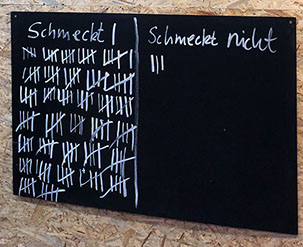 Schmeckt
Schmeckt nicht
|||